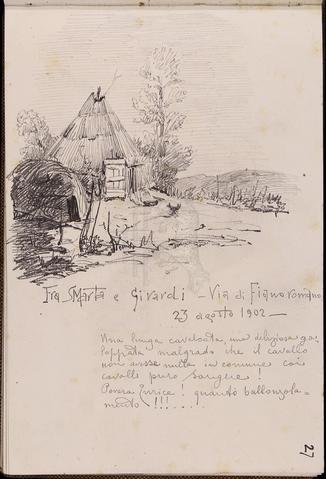 Fra S. Marta e Girardi – Via di Fiano romano
23 agosto 1902 –
Una lunga cavalcata, una deliziosa ga-
loppata malgrado che il cavallo
non avesse nulla in comune coi
cavalli puro sangue!
Povera Nurice! quanto ballonzola-
mento!!!...
27